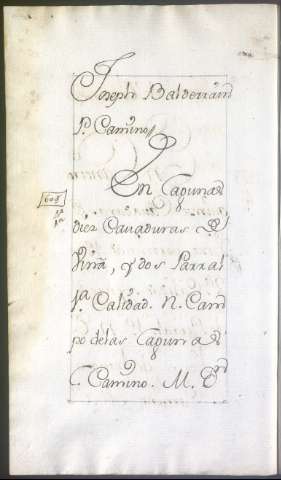 Joseph Balderrain
P. Camino
En Lagunas
608
diez Cauaduras de
Viña, y dos Parral
1ª. Calidad. N. Cam
po de las Lagunas
C. Camino. M.